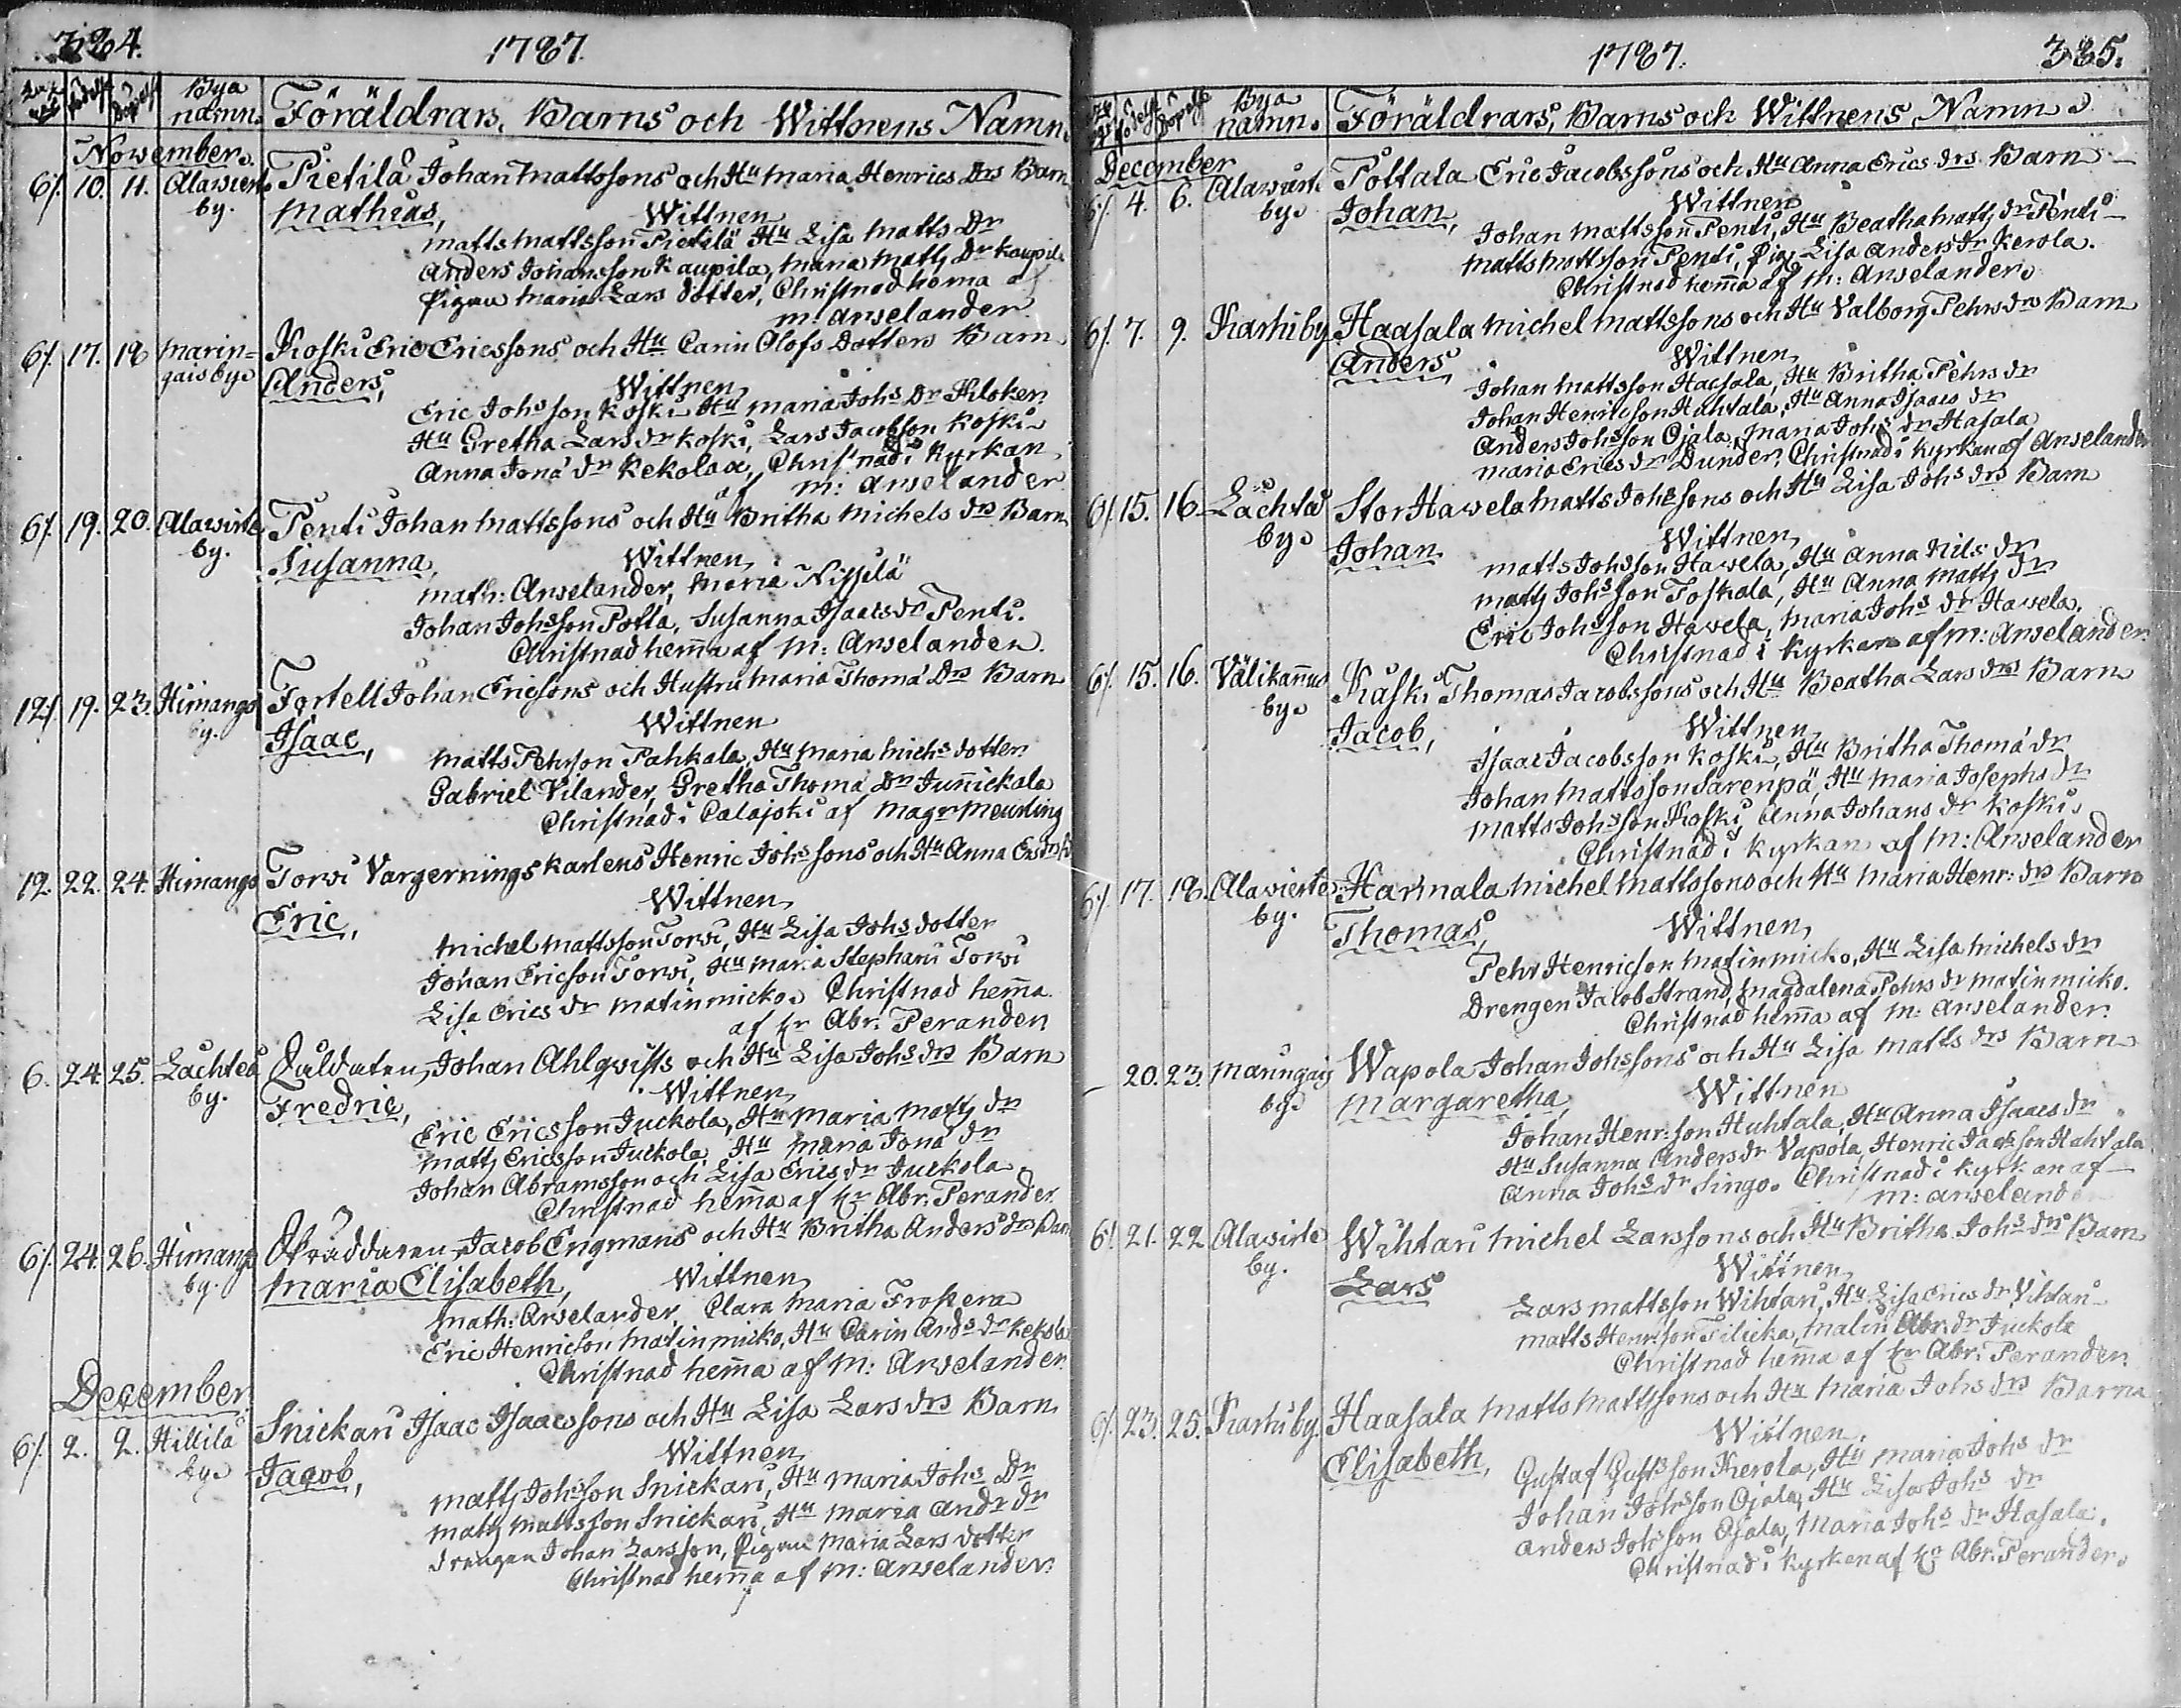 324.
1787.
Bya namn.
Föräldrars, Barns och Wittnens Namn.
November.
6/. 10. 11. Alavirte by. Pietilä Johan Mattssons och Hu Maria Henrics Drs Barn
Mathias, Wittnen
Matts Mattsson Pietilä Hu Lisa Matts Dr
Anders Johansson Kaupila, Maria Matts Dr Kaupila
Pigan Maria Lars dotter, Christnad hema af
M: Arvelander.
6/. 17. 18 Marin=gais by. Koski Eric Ericssons och Hu Carin Olofs Dotters Barn
Anders, Wittnen
Eric Johs son Koski Hu Maria Johs Dr Kiloker
Hu Gretha Lars dr Koski, Lars Jacobson Koski
Anna Jona dr Kekolaa, Christnad i Kyrkan
af M: Arvelander
6/. 19. 20. Alavirte by. Penti Johan Mattssons och Hu Britha Michels drs Barn
Susanna, Wittnen
Math: Arvelander, Maria Nisselä
Johan Johsson Potla, Susanna Isaacs dr Penti.
Christnad hema af M: Arvelander.
12/. 19. 23. Himango by. Tortell Johan Ericsons och Hustru Maria Thoma Drs Barn
Isaac, Wittnen
Matts Pehrson Pahkala, Hu Maria Michs dotter
Gabriel Vilander, Gretha Thoma Dr Junnickala
Christnad i Calajoki af Magr Meurling
12. 22. 24. Himango Torvi Vargerningskarlens Henric Johs sons och Hu Anna Ers drs
Eric, Wittnen
Michel Mattsson Torvi, Hu Lisa Johs dotter
Johan Ericson Torvi, Hu Maria Stephans Torvi
Lisa Erics dr Matinmicko. Christnad hema
af Hr Abr: Perander
6. 24. 25. Lachteå by. Solldaten, Johan Ahlqvists och Hu Lisa Johs drs Barn
Fredric, Wittnen
Eric Ericsson Juckola, Hu Maria Matts dr
Matts Ericsson Juckola, Hu Maria Jona dr
Johan Abramsson och Lisa Erics dr Juckola
Christnad hema af Hr Abr. Perander.
6/. 24. 26. Himango by. Skräddaren Jacob Engmans och Hu Britha Anders drs Barn
Maria Elisabeth, Wittnen
Math: Arvelander, Clara Maria Frosera
Eric Henricson Matinmicko, Hu Carin Ands dr Kekola
Christnad hema af M: Arvelander.
December.
6/. 2. 2. Hillilä by. Snickari Isaac Isaacssons och Hu Lisa Lars drs Barn
Jacob, Wittnen
Matts Johsson Snickari, Hu Maria Johs Dr
Matts Mattsson Snickari, Hu Maria Andr dr
Drengen Johan Larsson, Pigan Maria Lars dotter
Christnad hema af M: Arvelander.
1787. 325.
Bya namn. Föräldrars, Barns och Wittnens Namn.
December
6/. 4. 6. Alavirte by. Pottala Eric Jacobssons och Hu Anna Erics drs Barn
Johan, Wittnen
Johan Mattsson Penti, Hu Beatha Matts dr Penti
Matts Mattsson Penti, Pig. Lisa Anders dr Kerola.
Christnad hema af M: Arvelander.
6/. 7. 9. Karhi by. Haasala Michel Mattssons och Hu Valborg Pehrs drs Barn
Anders, Wittnen
Johan Mattsson Haasala, Hu Britha Pehrs dr
Johan Henricson Huhtala, Hu Anna Isaacs dr
Anders Johsson Ojala, Maria Johs dr Hasala
Maria Erics dr Dunder, Christnad i Kyrkan af Arvelander
6/. 15. 16. Lachteå by. Stor Havela Matts Johssons och Hu Lisa Johs drs Barn
Johan Wittnen
Matts Johsson Havela, Hu Anna Nils dr
Matts Johsson Toskala, Hu Anna Matts dr
Eric Johsson Havela, Maria Johs dr Havela.
Christnad i Kyrkan af M: Arvelander.
6/. 15. 16. Välikannus by. Koski Thomas Jacobssons och Hu Beatha Lars drs Barn
Jacob, Wittnen
Isaac Jacobsson Koski, Hu Britha Thoma dr
Johan Mattsson Sarenpä, Hu Maria Josephs dr
Matts Johsson Koski, Anna Johans dr Koski.
Christnad i Kyrkan af M: Arvelander
6/. 17. 18. Alavierte by. Harmala Michel Mattssons och Hu Maria Henr: drs Barn
Thomas, Wittnen
Pehr Henricson Matinmicko, Hu Lisa Michels dr
Drengen Jacob Strand, Magdalena Pehrs dr Matinmicko.
Christnad hema af M: Arvelander.
20. 23. Maringais by. Wapola Johan Johssons och Hu Lisa Matts drs Barn
Margaretha, Wittnen
Johan Henr: son Huhtala, Hu Anna Isaacs dr
Hu Susanna Anders dr Vapola, Henric Jackson Huhtala
Anna Johs dr Singo. Christnad i Kyrkan af
M: Arvelander
6/. 21. 22 Alavirte by. Wihtari Michel Larssons och Hu Britha Johs drs Barn
Lars Wittnen
Lars Mattsson Wihtari, Hu Lisa Erics dr Vihtari
Matts Henrsson Tilicka, Malin Abr. dr Juckola
Christnad hema af Hr Abr: Perander.
6/. 23. 25. Karhi by. Haasala Matts Mattssons och Hu Maria Johs drs Barn
Elisabeth, Wittnen.
Gustaf Gustsson Kerola, Hu Maria Johs dr
Johan Johsson Ojala, Hu Lisa Johs dr
Anders Johsson Ojala, Maria Johs dr Hasala.
Christnad i Kyrkan af Hr Abr. Perander.